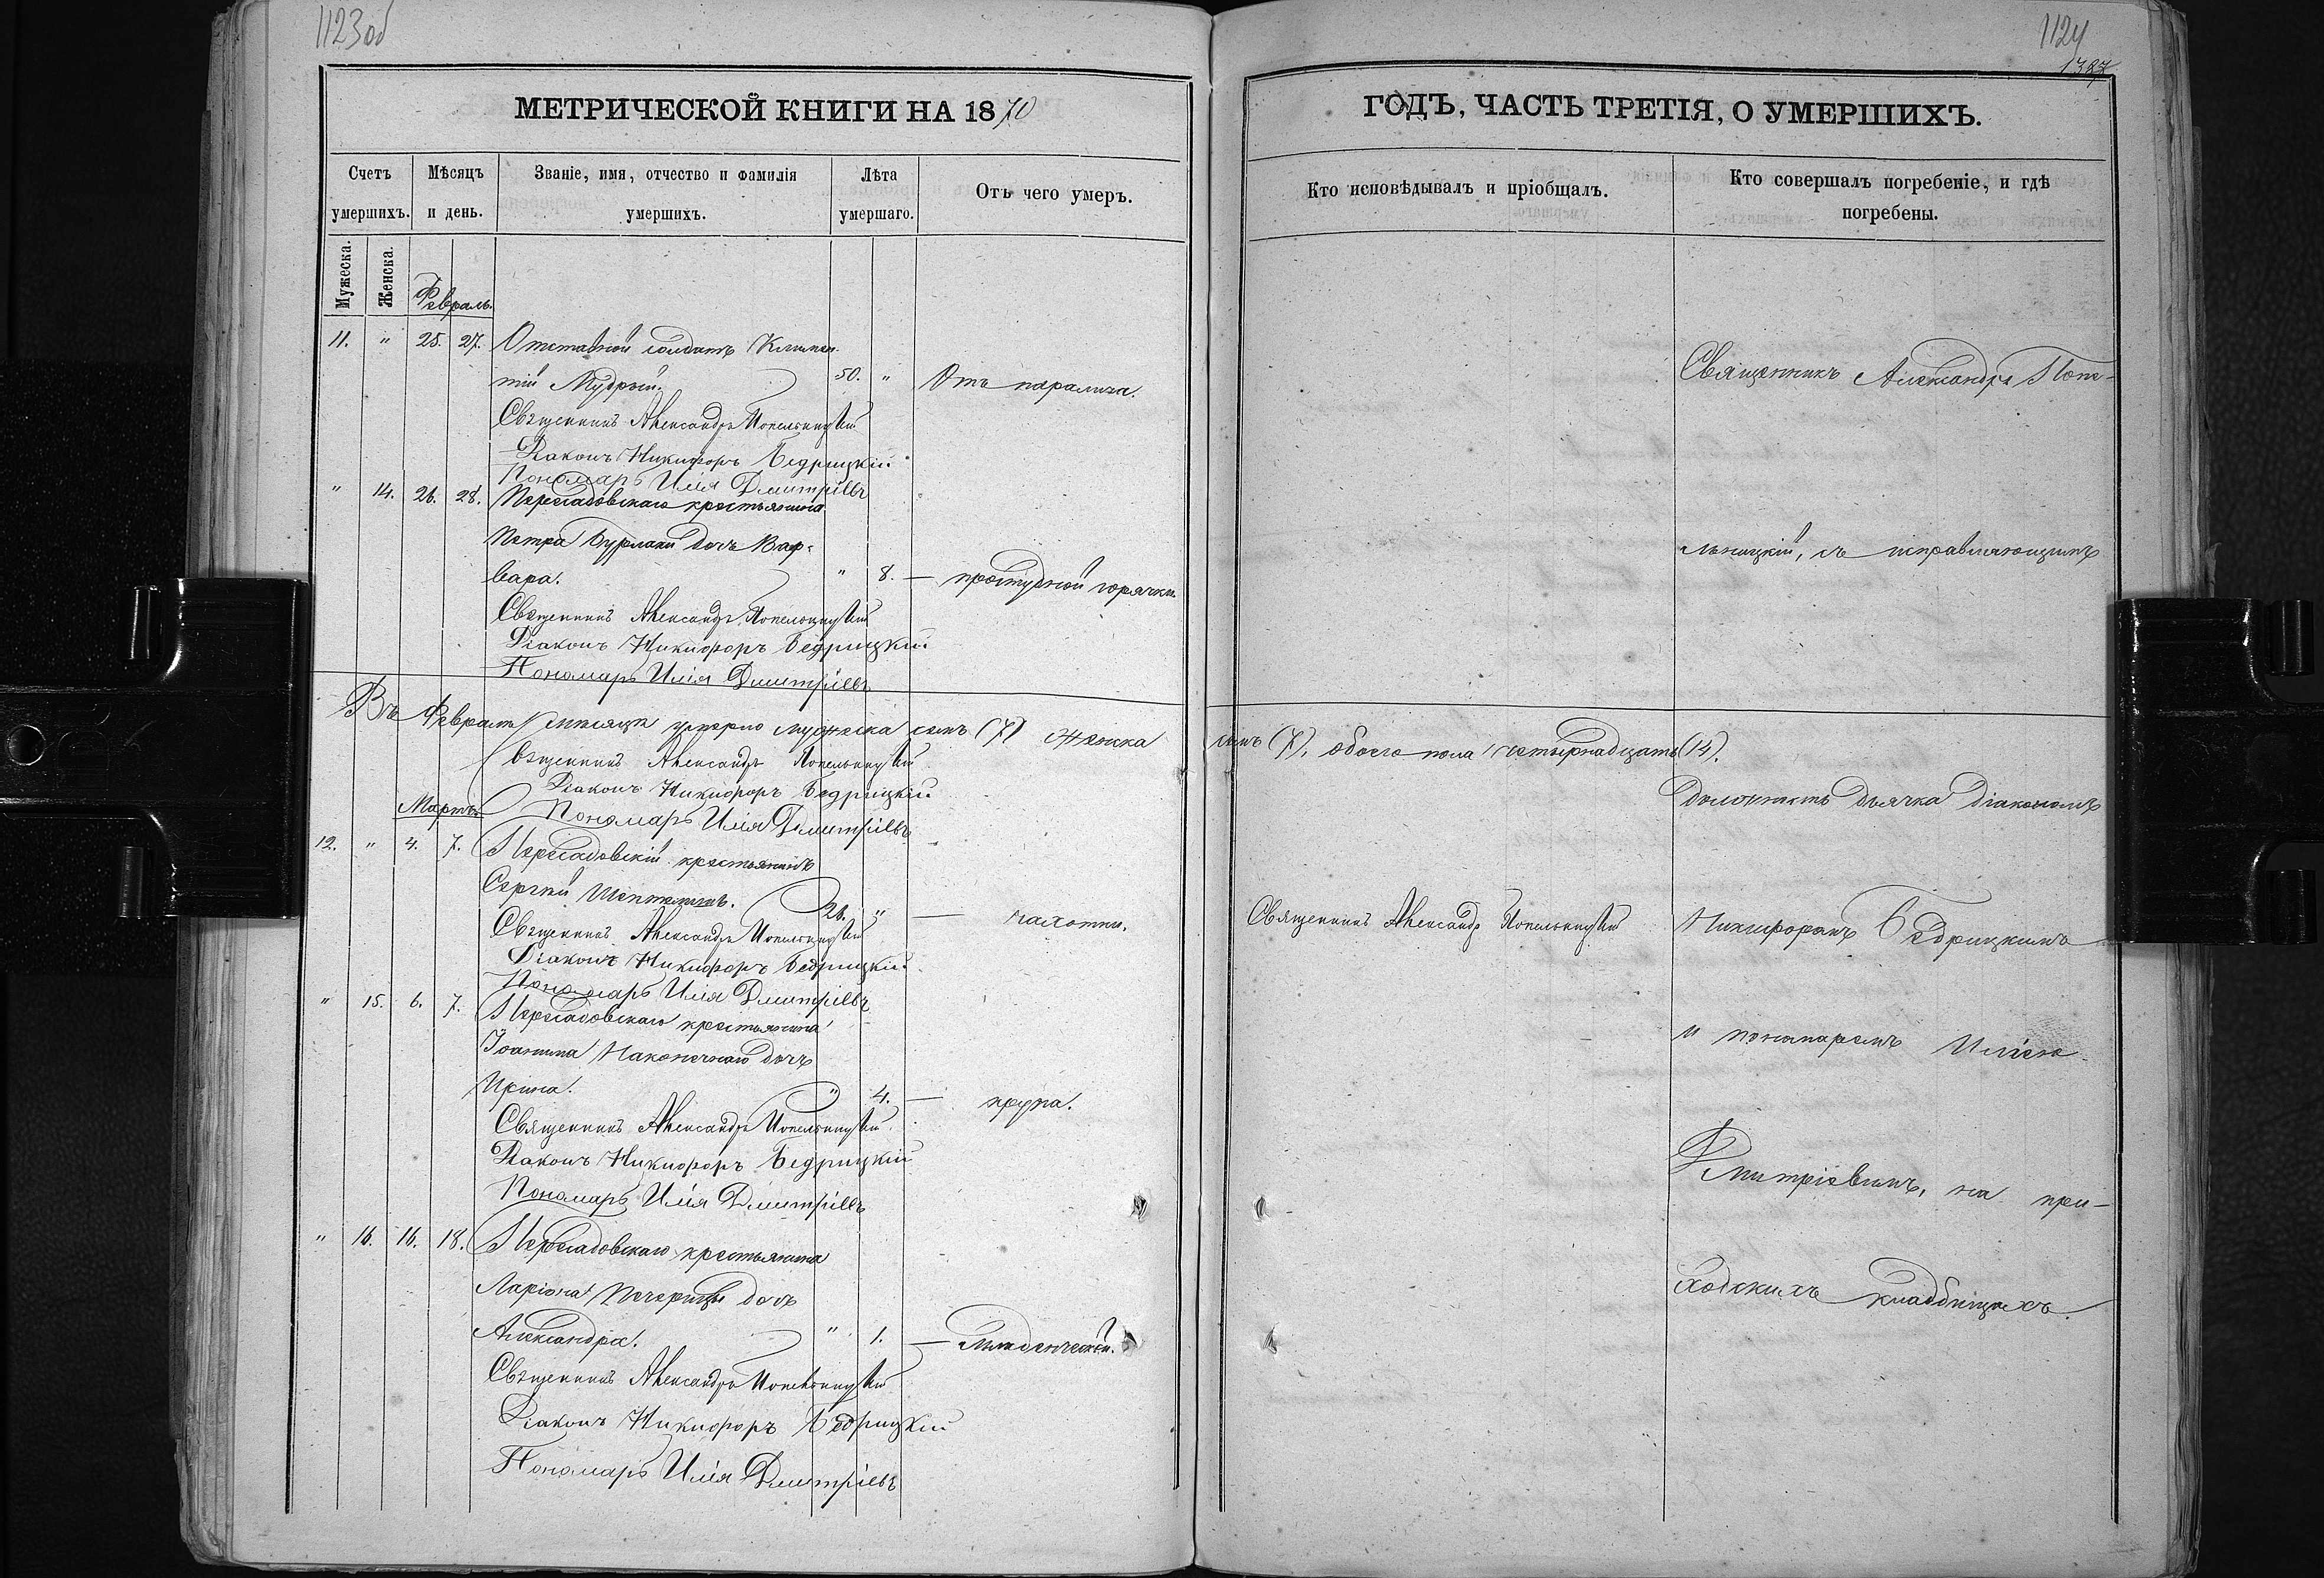 1123об
МЕТРИЧЕСКОЙ КНИГИ НА 1870
Счетъ умершихъ.
Мѣсяцъ и день.
Званіе, имя, отчество и фамилія умершихъ.
Лѣта умершаго.
Отъ чего умеръ.
Мужеска.
Женска.
Февраль.
11. " 25. 27. Отставной солдатъ Климен-
тій Мудрый. 50. " Отъ паралича.
Священникъ Александръ Попельницкій
Діаконъ Никифоръ Бедрицкій
Пономарь Илія Дмитріевъ
" 14. 26. 28. Пересадовскаго крестьянина
Петра Бурлаки дочь Вар-
вара. " 8. — простудной горячки
Священникъ Александръ Попельницкій
Діаконъ Никифоръ Бедрицкій
Пономарь Илія Дмитріевъ
Въ Февралѣ мѣсяцѣ умерло мужеска семь (7) женска
Священникъ Александръ Попельницкій
Діаконъ Никифоръ Бедрицкій
Пономарь Илія Дмитріевъ
Мартъ
12. " 4. 7. Пересадовскій крестьянинъ
Сергѣй 26. " — чахотки.
Священникъ Александръ Попельницкій
Діаконъ Никифоръ Бедрицкій
Пономарь Илія Дмитріевъ
" 15. 6. 7. Пересадовскаго крестьянина
Іоанна Наконечнаго дочь
Ирина. " 4. — крупа.
Священникъ Александръ Попельницкій
Діаконъ Никифоръ Бедрицкій
Пономарь Илія Дмитріевъ
" 16. 16. 18. Пересадовскаго крестьянина
Ларіона Печерицы дочь
Александра. " 1. — младенческой.
Священникъ Александръ Попельницкій
Діаконъ Никифоръ Бедрицкій
Пономарь Илія Дмитріевъ
1124
1327
ГОДЪ, ЧАСТЬ ТРЕТІЯ, О УМЕРШИХЪ.
Кто исповѣдывалъ и пріобщалъ.
Кто совершалъ погребеніе, и гдѣ
погребены.
Священникъ Александръ Попе-
льницкій, съ исправляющимъ
семь (7), обоего пола четырнадцать (14).
должность дьячка діакономъ
Священникъ Александръ Попельницкій
Никифоромъ Бедрицкимъ
и пономаремъ Иліею
Дмитріевымъ, на при-
ходскихъ кладбищахъ.